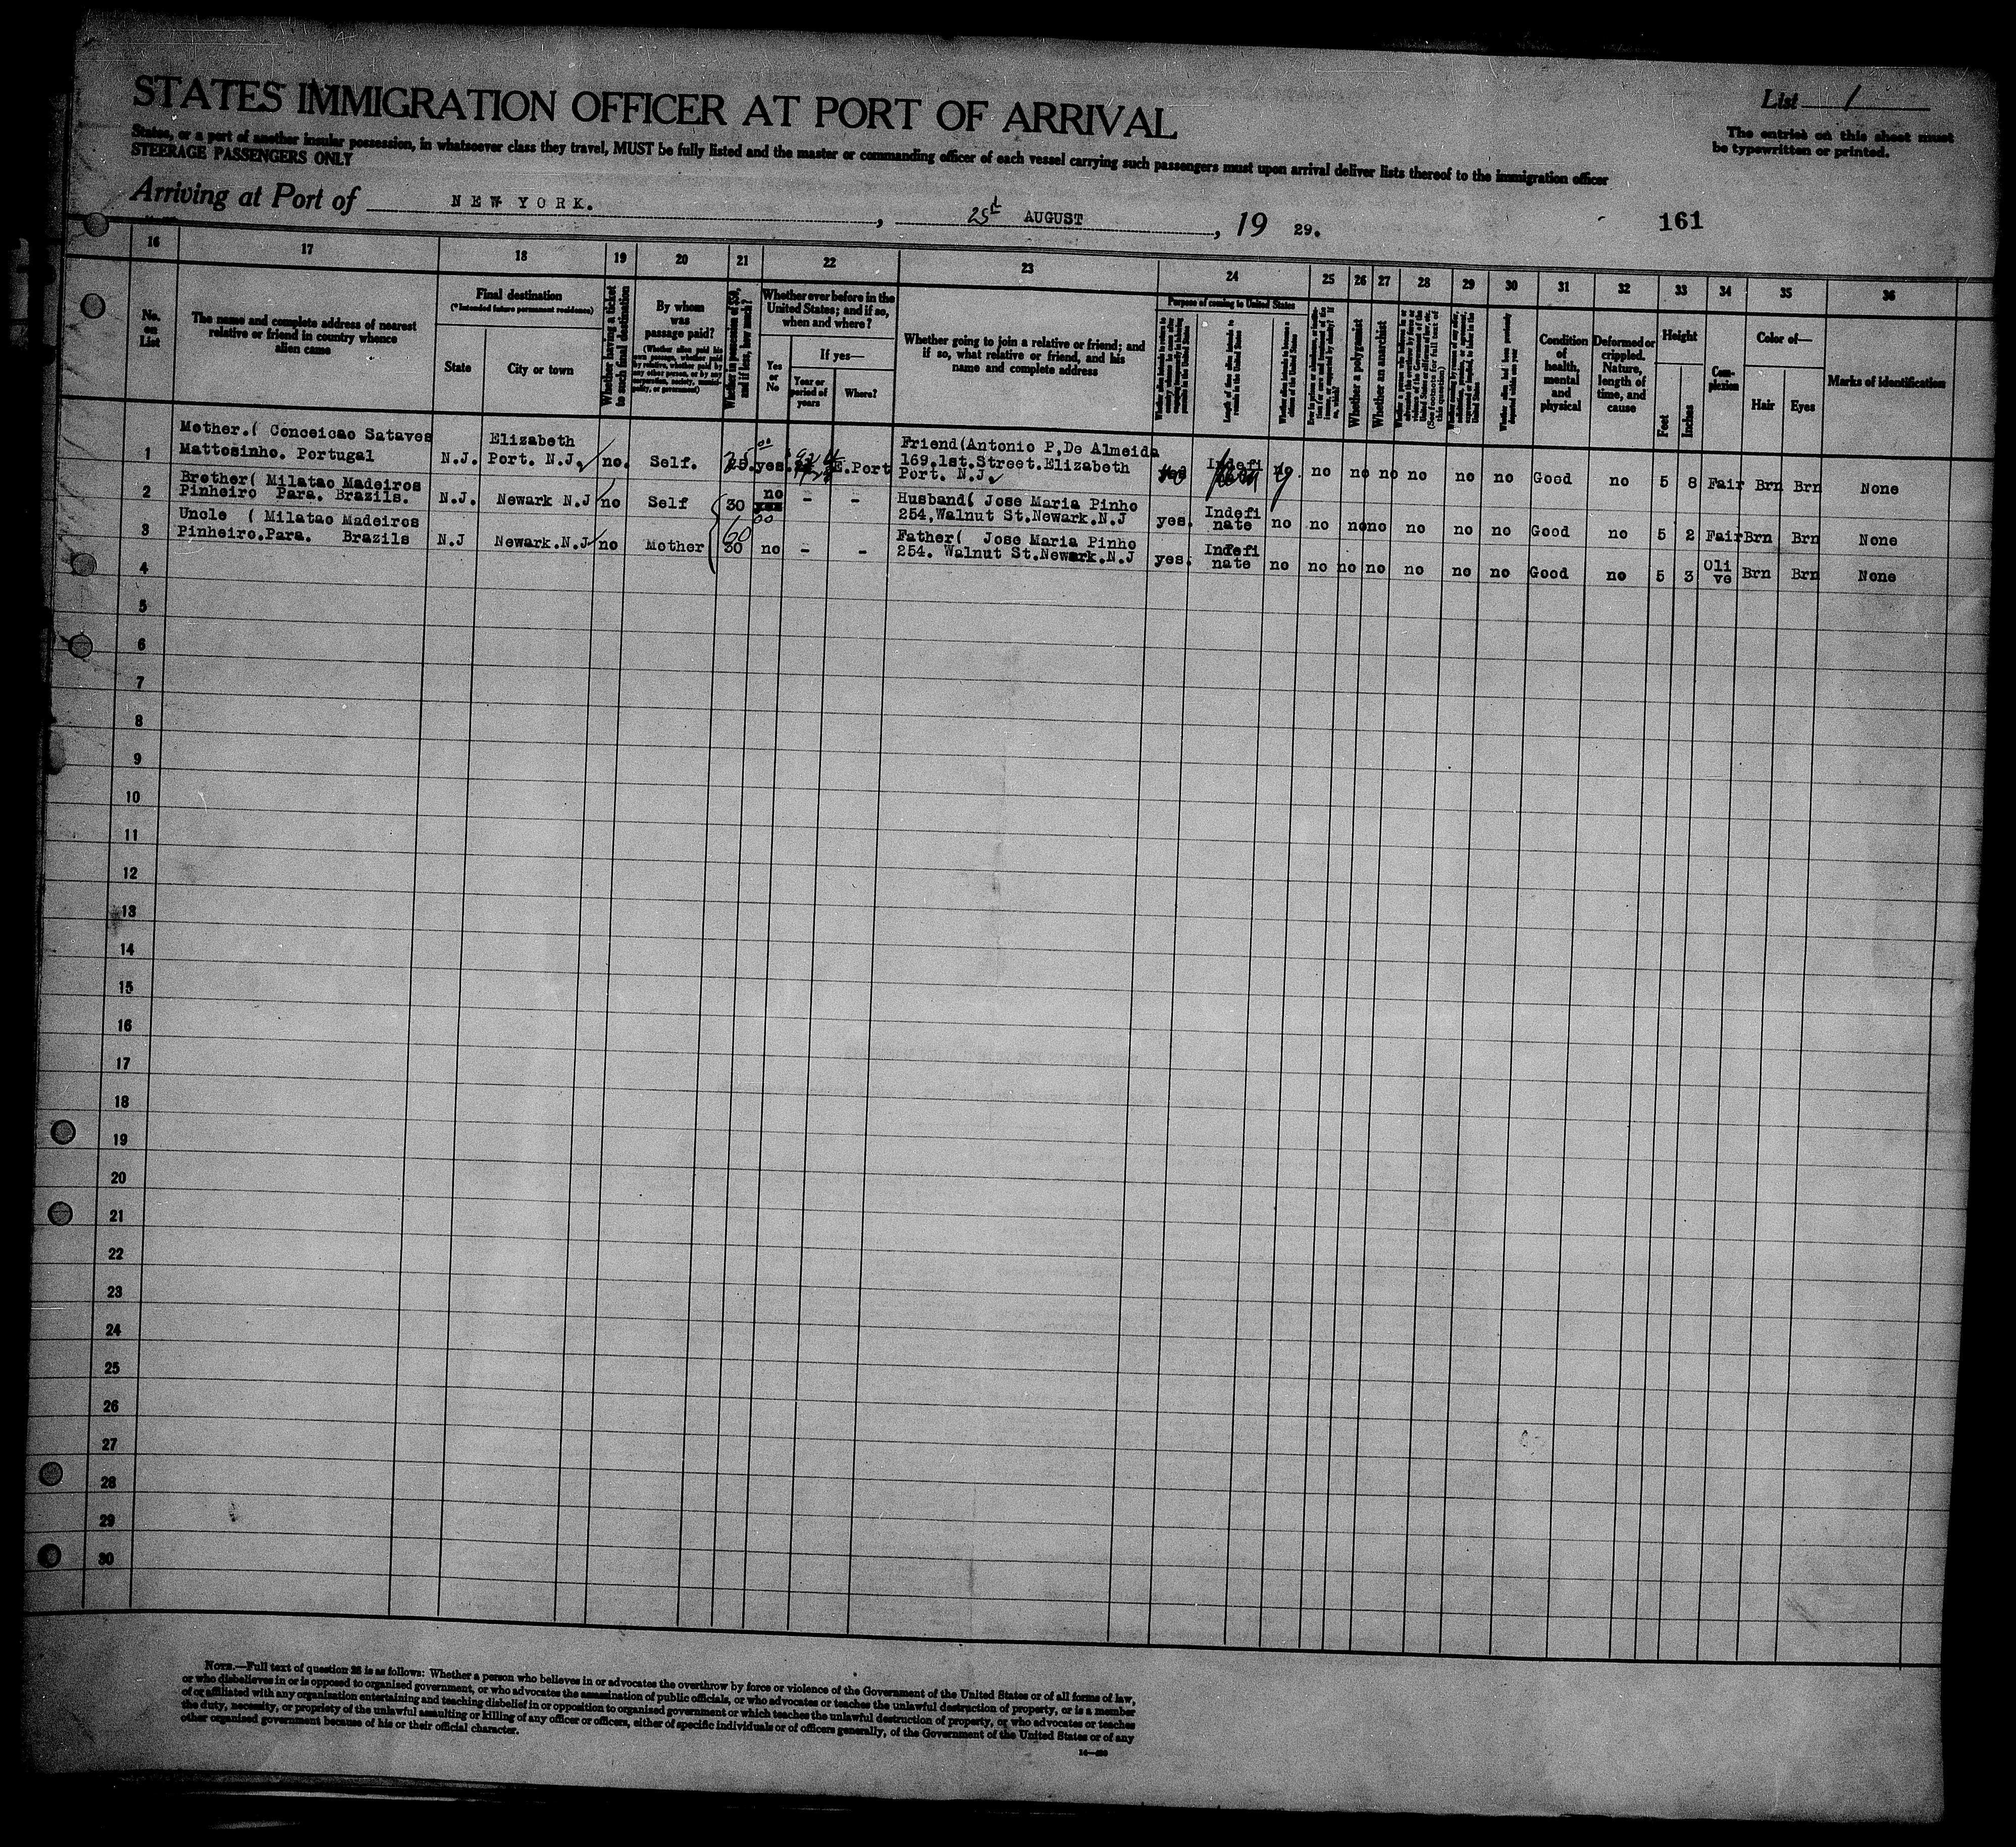 STATES IMMIGRATION OFFICER AT PORT OF ARRIVAL
List 1
The entries on this sheet must
be typewritten or printed.
States, or a port of another insular possession, in whatsoever class they travel, MUST be fully listed and the master or commanding officer of each vessel carrying such passengers must upon arrival deliver lists thereof to the immigration officer
STEERAGE PASSENGERS ONLY
Arriving at Port of NEW YORK. , 25th AUGUST , 19 29.
161
16 17 18 19 20 21 22 23 24 25 26 27 28 29 30 31 32 33 34 35 36
No.
on
List
The name and complete address of nearest
relative or friend in country whence
alien came
Final destination
(*Intended future permanent residence)
State
City or town
Whether having a ticket
to such final destination
By whom
was
passage paid?
Whether in possession of $50,
and if less, how much?
Whether ever before in the
United States; and if so,
when and where?
Yes
or
No
If yes—
Year or
period of
years
Where?
Whether going to join a relative or friend; and
if so, what relative or friend, and his
name and complete address
Purpose of coming to United States
Length of time alien intends to
remain in the United States
Whether alien intends to become a
citizen of the United States
Whether a polygamist
Whether an anarchist
Condition
of
health,
mental
and
physical
Deformed or
crippled.
Nature,
length of
time, and
cause
Height
Feet
Inches
Com-
plexion
Color of—
Hair
Eyes
Marks of identification
Mother.( Conceicao Sataves
Mattosinho. Portugal
N.J.
Elizabeth
Port. N.J.
no.
Self.
yes.
E.Port
Friend(Antonio P,De Almeida
169.1st.Street.Elizabeth
Port. N.J.
Indefi
no no no no no no Good no 5 8 Fair Brn Brn None
Brother( Milatao Madeiros
Pinheiro Para. Brazils.
N.J. Newark N.J no Self 30
no
yes
- -
Husband( Jose Maria Pinho
254.Walnut St.Newark.N.J
yes.
Indefi
nate
no no no no no no no Good no 5 2 Fair Brn Brn None
Uncle ( Milatao Madeiros
Pinheiro.Para. Brazils
N.J Newark.N.J no Mother
60
30
no - -
Father( Jose Maria Pinho
254. Walnut St.Newark.N.J
yes.
Indefi
nate
no no no no no no no Good no 5 3
Oli
ve
Brn Brn None
1
2
3
4
5
6
7
8
9
10
11
12
13
14
15
16
17
18
19
20
21
22
23
24
25
26
27
28
29
30
NOTE.—Full text of question 28 is as follows: Whether a person who believes in or advocates the overthrow by force or violence of the Government of the United States or of all forms of law,
or who disbelieves in or is opposed to organized government, or who advocates the assassination of public officials, or who advocates or teaches the unlawful destruction of property, or is a member
of or affiliated with any organization entertaining and teaching disbelief in or opposition to organized government or which teaches the unlawful destruction of property, or who advocates or teaches
the duty, necessity, or propriety of the unlawful assaulting or killing of any officer or officers, either of specific individuals or of officers generally, of the Government of the United States or of any
other organized government because of his or their official character.